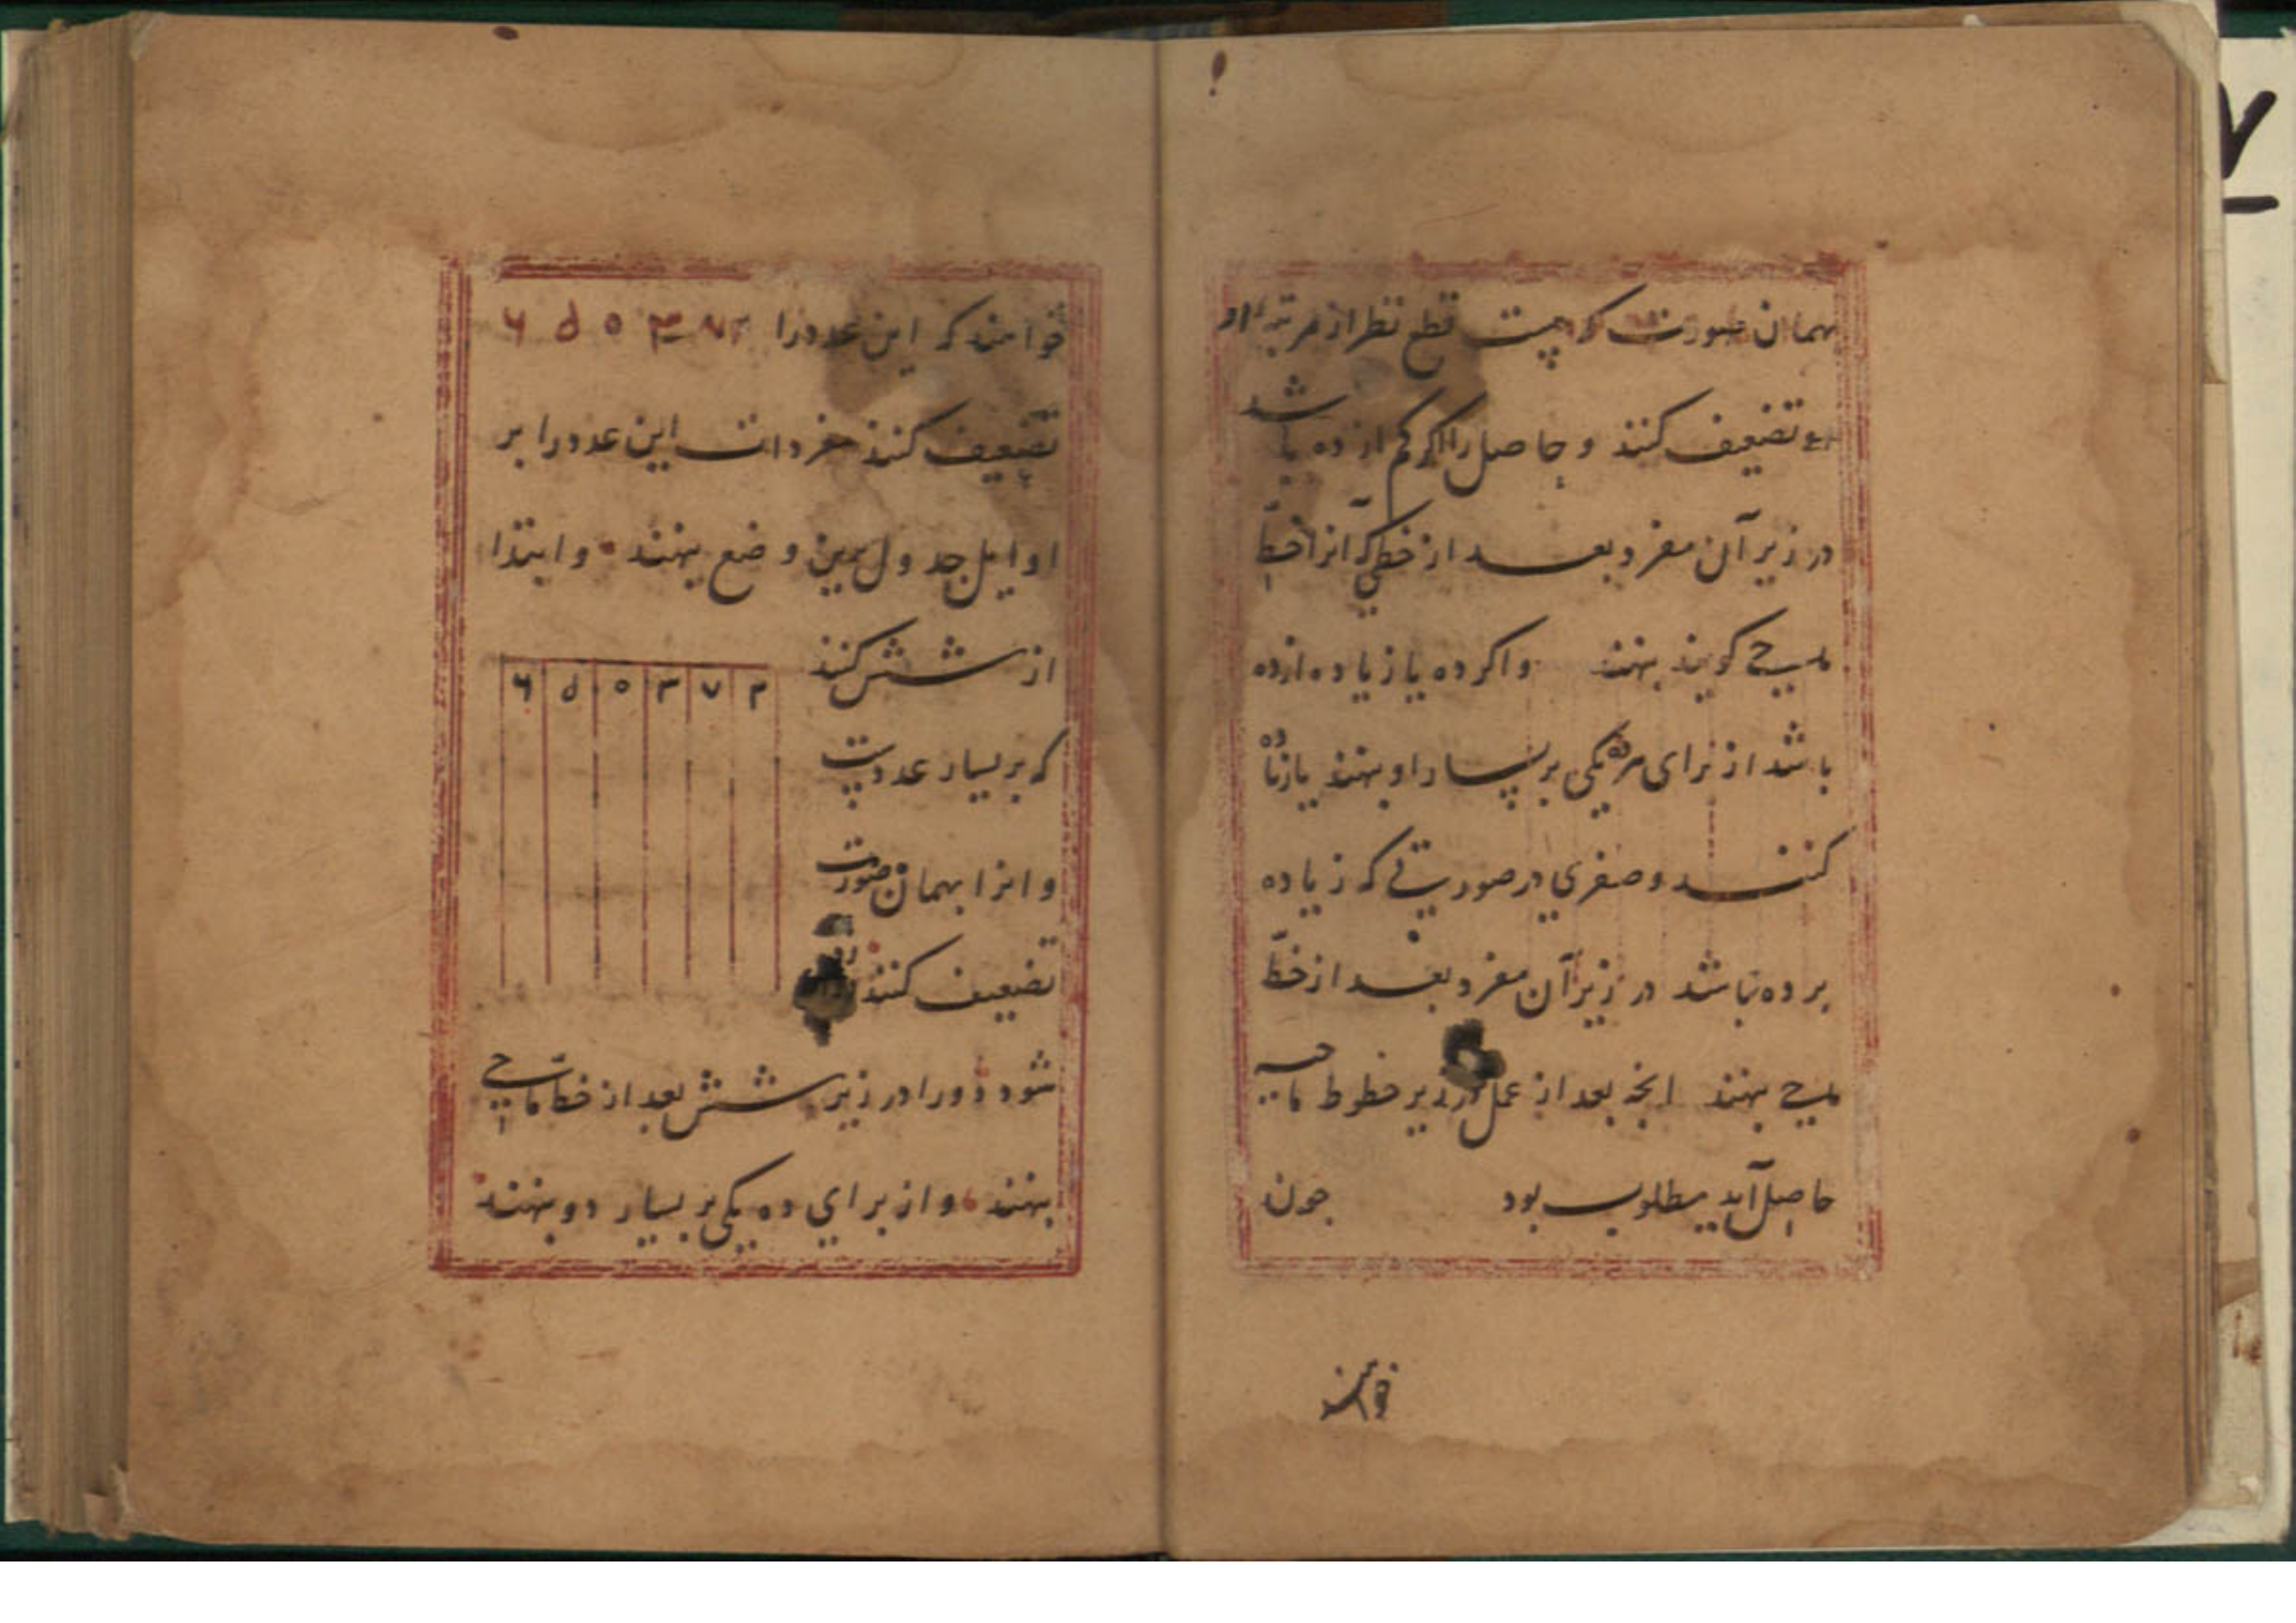 بهمان صورت که هست قطع نظر از مرتبه او
تضعیف کنند و حاصل را اگر کم از ده باشد
در زیر آن مفرد بعد از خطی که آنرا خط
ماحی گویند بنهند واکر ده یا زیاده از ده
باشد از برای هر ده یکی بر یسار او بنهند یا زیاده
کنند و صفری در صورتی که زیاده
بر ده نباشد در زیر آن مفرد بعد از خط
ماحی بنهند انچه بعد از عمل در زیر خطوط ماحیه
حاصل آید مطلوب بود جون
خواهند
خواهند که این عدد را ۲ ۷ ۳ ٥ ۵ ۶
تضعیف کنند مفردات این عدد را بر
اوایل جدول همین وضع بنهند وابتدا
از شش کنند
۶ ۵ ٥ ۳ ۷ ۲
که بر یسار عددست
و انرا بهمان صورت
تضعیف کنند
شود دو را در زیر شش بعد از خط ماحی
بنهند و از برای ده یکی بر یسار دو بنهند